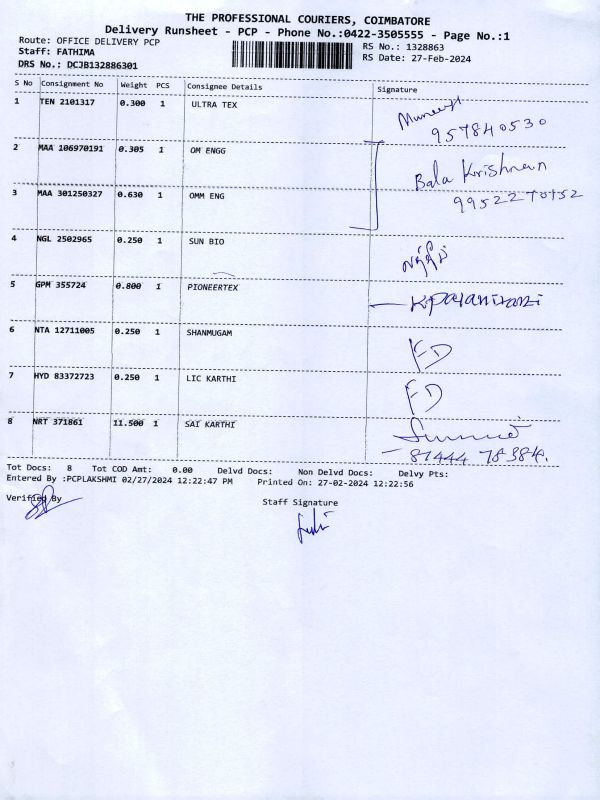 THE PROFESSIONAL COURIERS, COIMBATORE
Delivery Runsheet - PCP - Phone No.:0422-3505555 - Page No.:1
Route: OFFICE DELIVERY PCP
RS No.: 1328863
Staff: FATHIMA
RS Date: 27-Feb-2024
DRS No.: DCJB132886301
S No Consignment No Weight PCS Consignee Details Signature
1 TEN 2101317 0.300 1 ULTRA TEX
957840530
2 MAA 106970191 0.305 1 OM ENGG
Bala Krishnan
3 MAA 301250327 0.630 1 OMM ENG
9952270152
4 NGL 2502965 0.250 1 SUN BIO
5 GPM 355724 0.800 1 PIONEERTEX
6 NTA 12711005 0.250 1 SHANMUGAM
FD
7 HYD 83372723 0.250 1 LIC KARTHI
FD
8 NRT 371861 11.500 1 SAI KARTHI
81444 78384.
Tot Docs: 8 Tot COD Amt: 0.00 Delvd Docs: Non Delvd Docs: Delvy Pts:
Entered By :PCPLAKSHMI 02/27/2024 12:22:47 PM Printed On: 27-02-2024 12:22:56
Verified By
Staff Signature